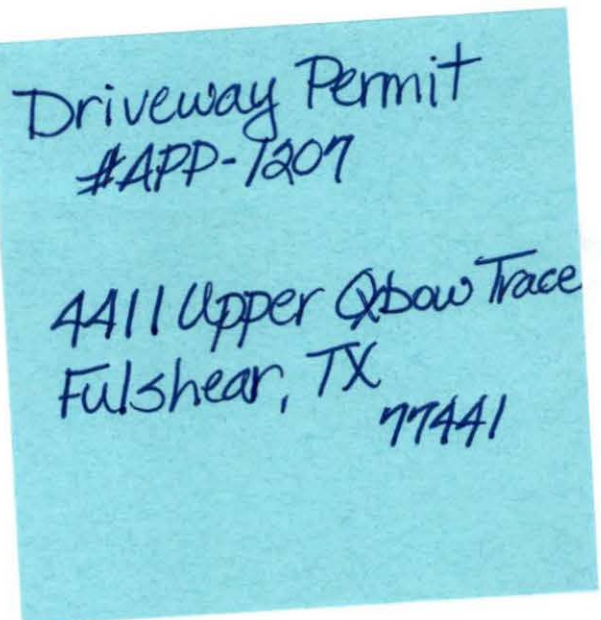 Driveway Permit
#APP-1207
4411 Upper Oxbow Trace
Fulshear, TX
77441